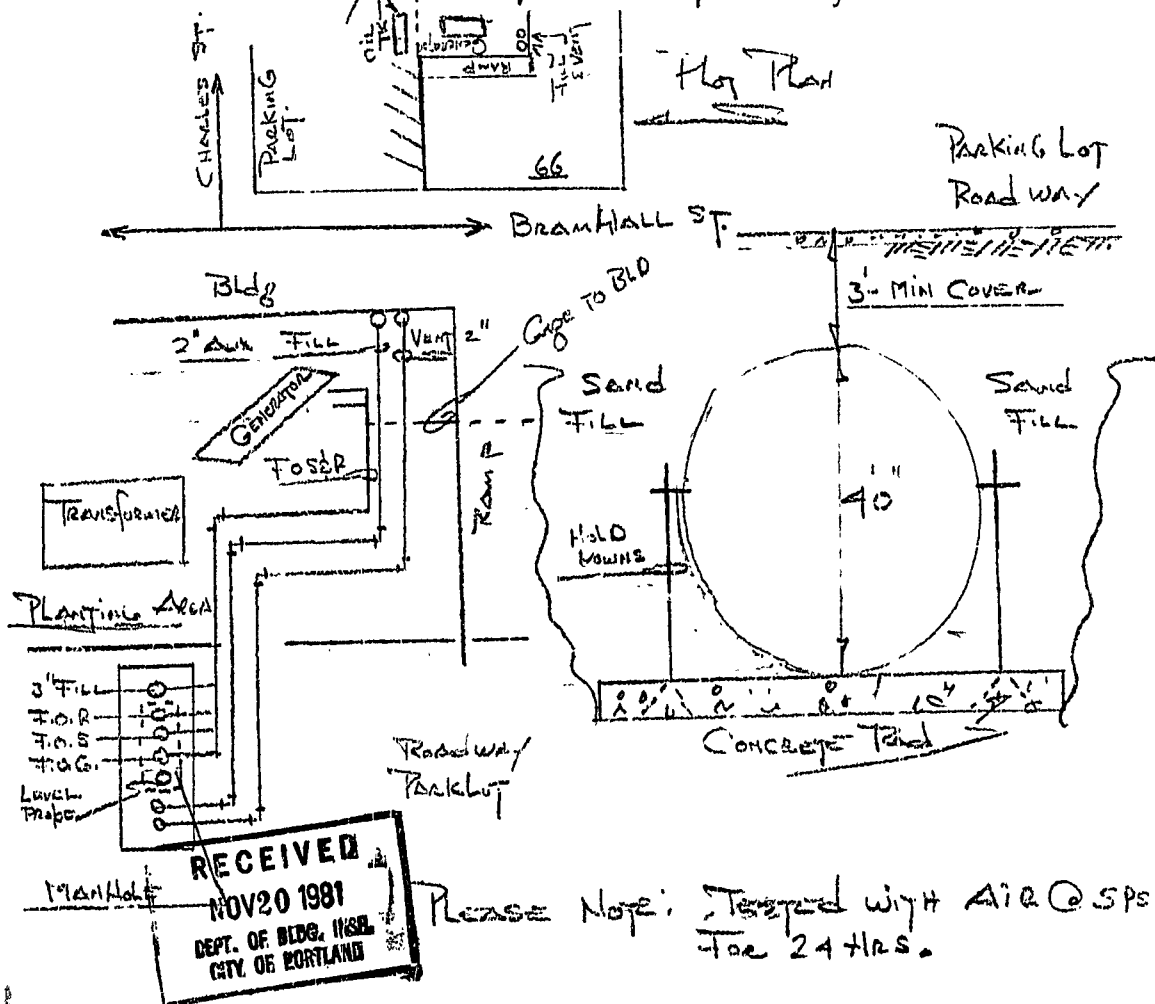 CHARLES ST.
PARKING
LOT.
OIL
TK
Generator
RAMP
FILL
& VENT
66
Plot Plan
BRAMHALL ST.
PARKING LOT
Roadway
3' MIN COVER
Bldg
2" Aux FILL
VENT 2"
Gage TO BLD
GENERATOR
FOS&R
RAMP
TRANSFORMER
PLANTING AREA
Sand
FILL
Sand
FILL
HOLD
DOWNS
3" FILL
F.O.R
F.O.S
F.O.G.
LEVEL
PROBE
MANHOLE
Roadway
PARKLOT
CONCRETE PAD
RECEIVED
NOV 20 1981
DEPT. OF BLDG. INSP.
CITY OF PORTLAND
PLEASE NOTE: TESTED WITH AIR @ 5PS
FOR 24 HRS.